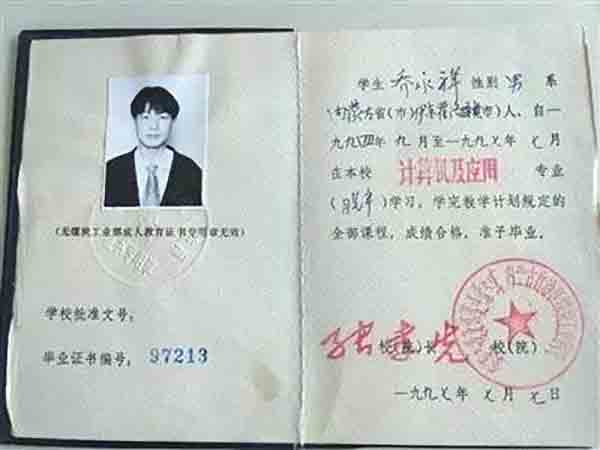 (无煤炭工业部成人教育证书专用章无效)
学校批准文号:
毕业证书编号: 97213
学生 乔永祥 性别 男 系
内蒙古省(市)伊金霍洛旗(市)人,自一
九九四年 九 月至一九九七年 七 月
在本校 计算机及应用 专业
(脱产)学习,学完教学计划规定的
全部课程,成绩合格,准予毕业。
校(院)长 校(院)
一九九七年 七 月 七 日